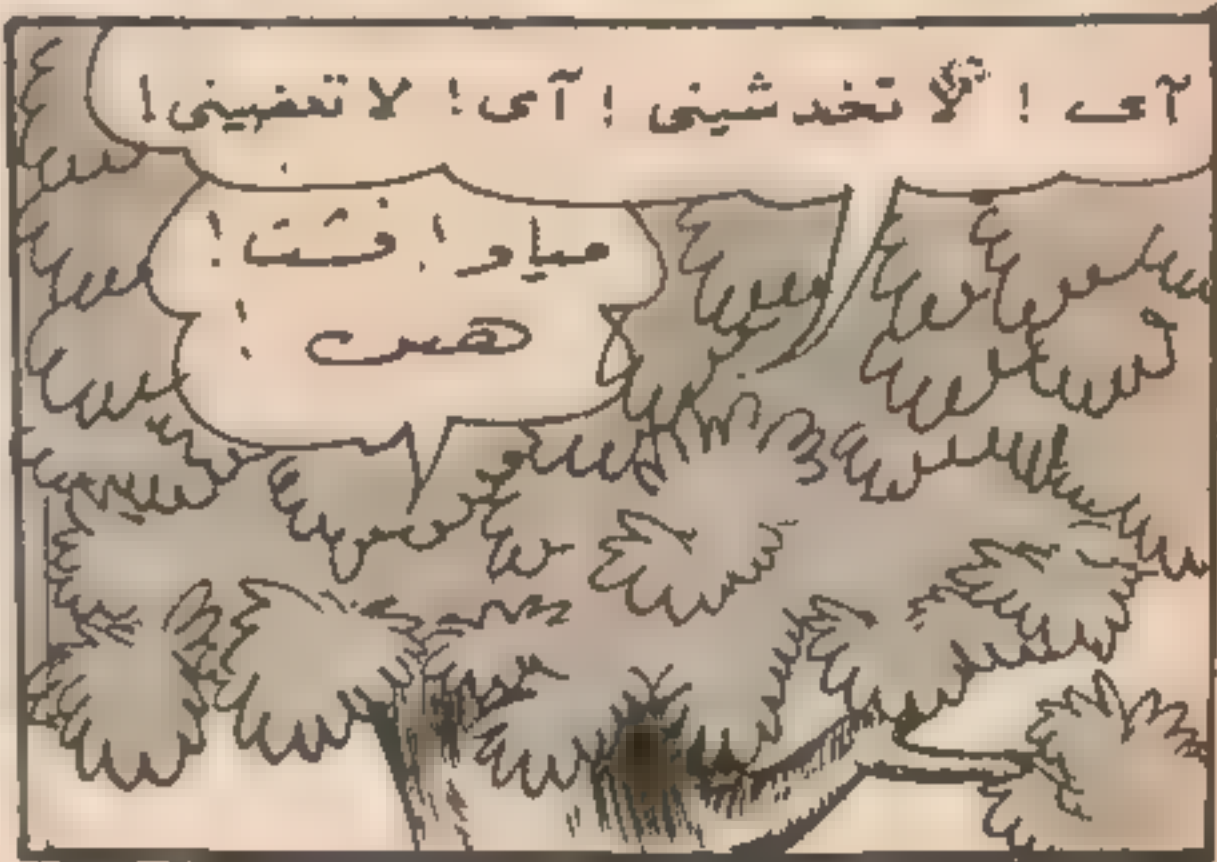 آى ! لا تخدشينى ! آى ! لا تعضينى !
مياو ! فست !
هس !